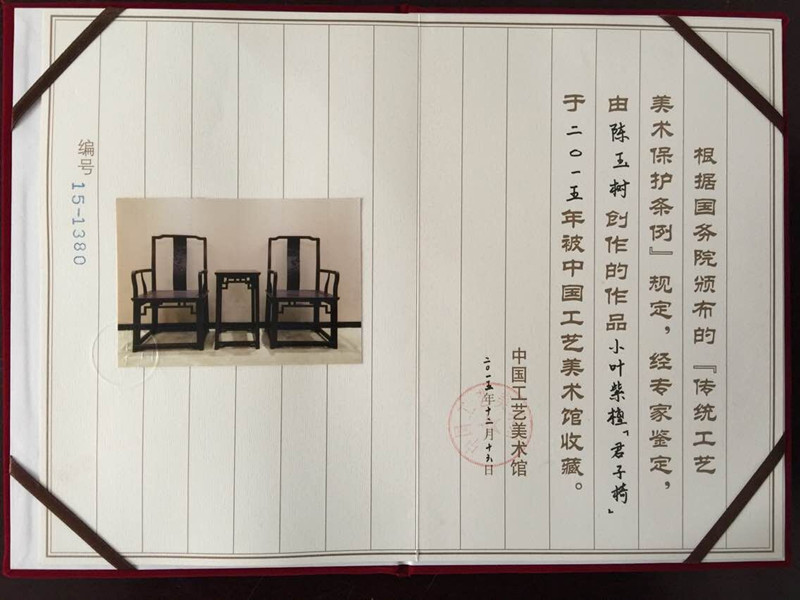 根据国务院颁布的『传统工艺
美术保护条例』规定，经专家鉴定，
由陈玉树创作的作品小叶紫檀「君子椅」
于二〇一五年被中国工艺美术馆收藏。
中国工艺美术馆
二〇一五年十二月十六日
编号
15-1380